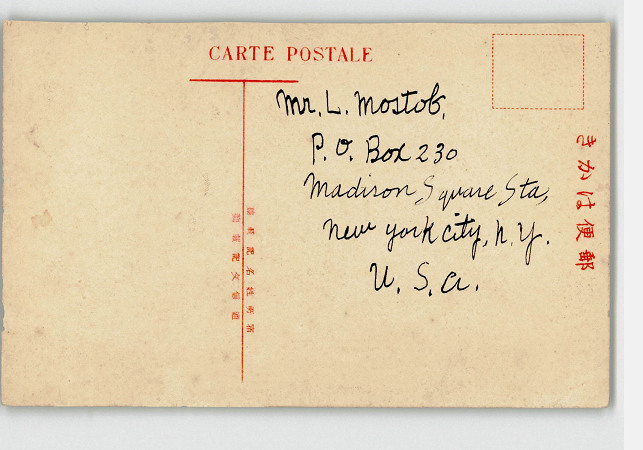 CARTE POSTALE
Mr. L. Mostob,
P. O. Box 230
Madison Square Sta,
New York City, N. Y.
U. S. A.
きかは便郵